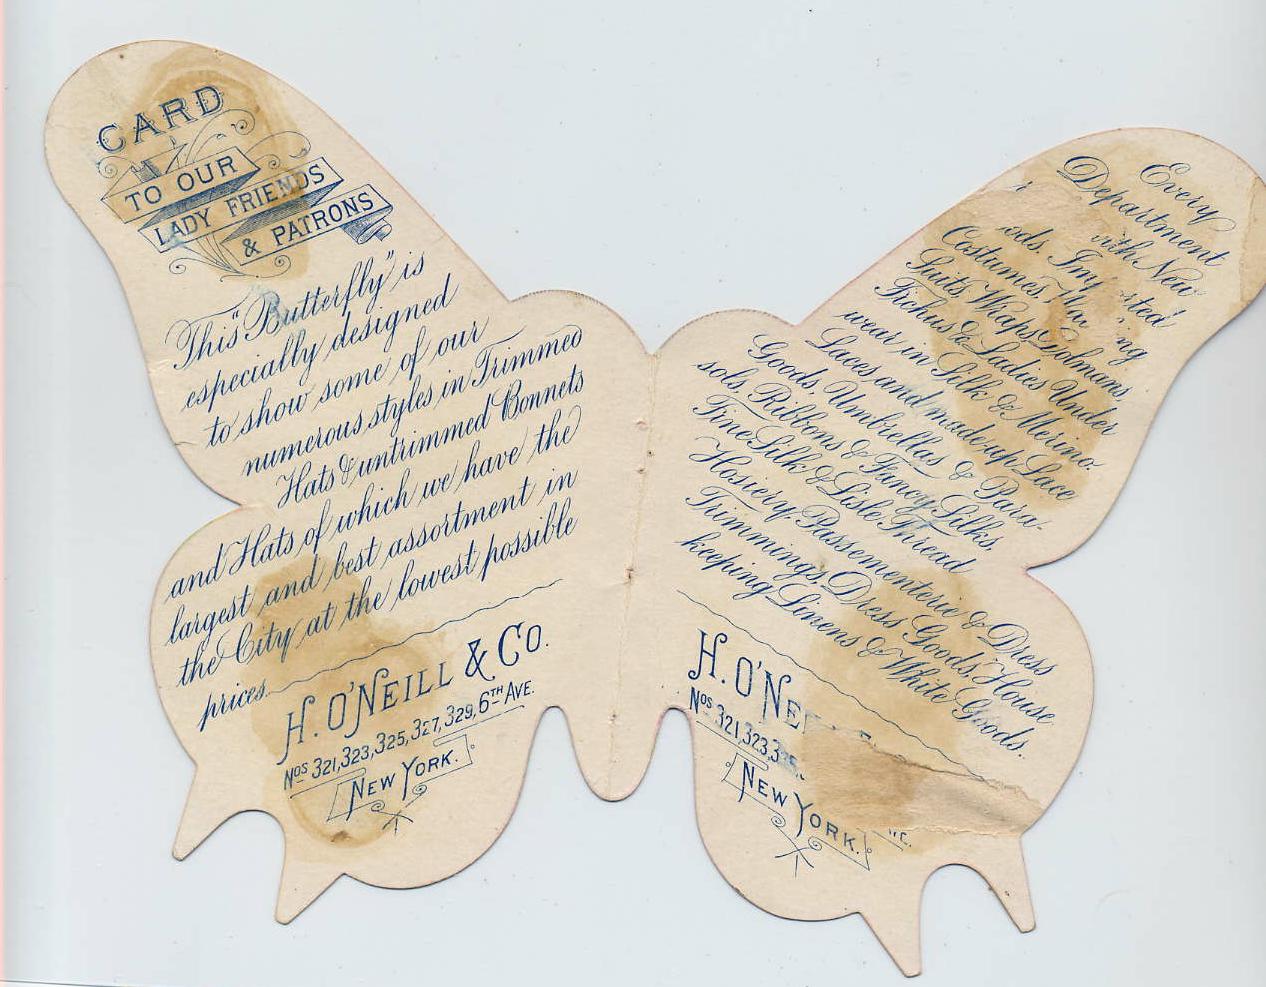 CARD
TO OUR
LADY FRIENDS
& PATRONS
This "Butterfly" is
especially designed
to show some of our
numerous styles in Trimmed
Hats & untrimmed Bonnets
and Hats of which we have the
largest and best assortment in
the City at the lowest possible
prices.
H. O'NEILL & Co.
Nos 321, 323, 325, 327, 329, 6TH AVE.
NEW YORK.
Every
Department
with New
Costumes,
Suits, Wraps, Dolmans,
Fichus & Ladies Under
wear in Silk & Merino.
Laces and made up Lace
Goods, Umbrellas & Para-
sols, Ribbons & Fancy Silks,
Fine Silk & Lisle Thread
Hosiery, Passementerie & Dress
Trimmings, Dress Goods, House
keeping Linens & White Goods.
H. O'NE
Nos 321, 323,
NEW YORK.